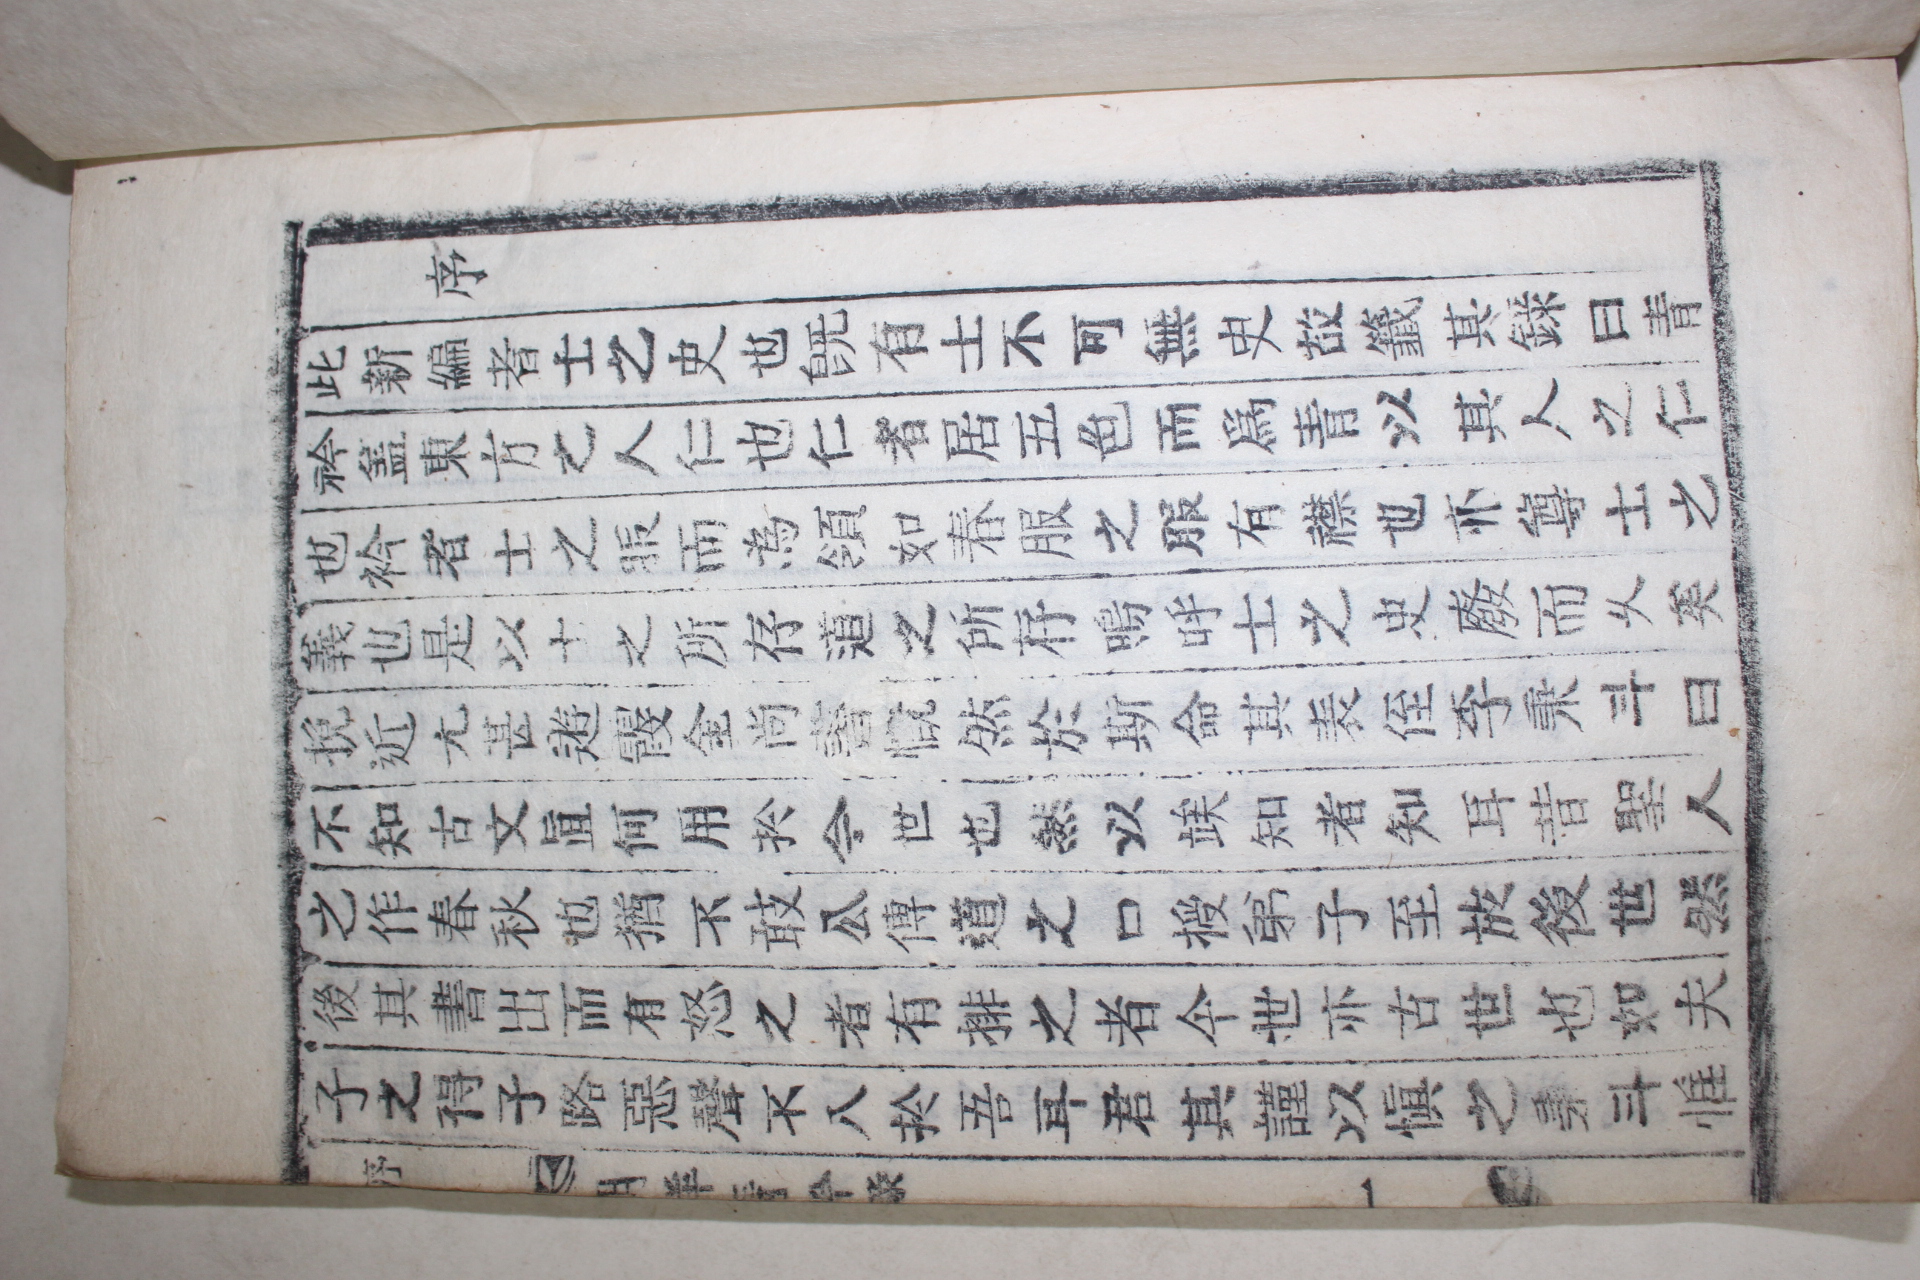 序
此新編者士之史也旣有士不可無史故籤其錄曰靑
衿盖東方之人仁也仁者居五色而爲靑以其人之仁
也衿者士之張而為領如春服之服有襟也亦尊士之
義也是以士之所存道之所存嗚呼士之史廢而久矣
挽近尤甚遊霞金尚書慨然於斯命其表侄李秉斗曰
不知古文直何用扵今世也然以竢知者知耳昔聖人
之作春秋也猶不敢公傳道之口授弟子至於後世然
後其書出而有怒之者有排之者今世亦古世也如夫
子之得子路惡聲不入扵吾耳君其謹以愼之秉斗惟
序
靑衿錄
一